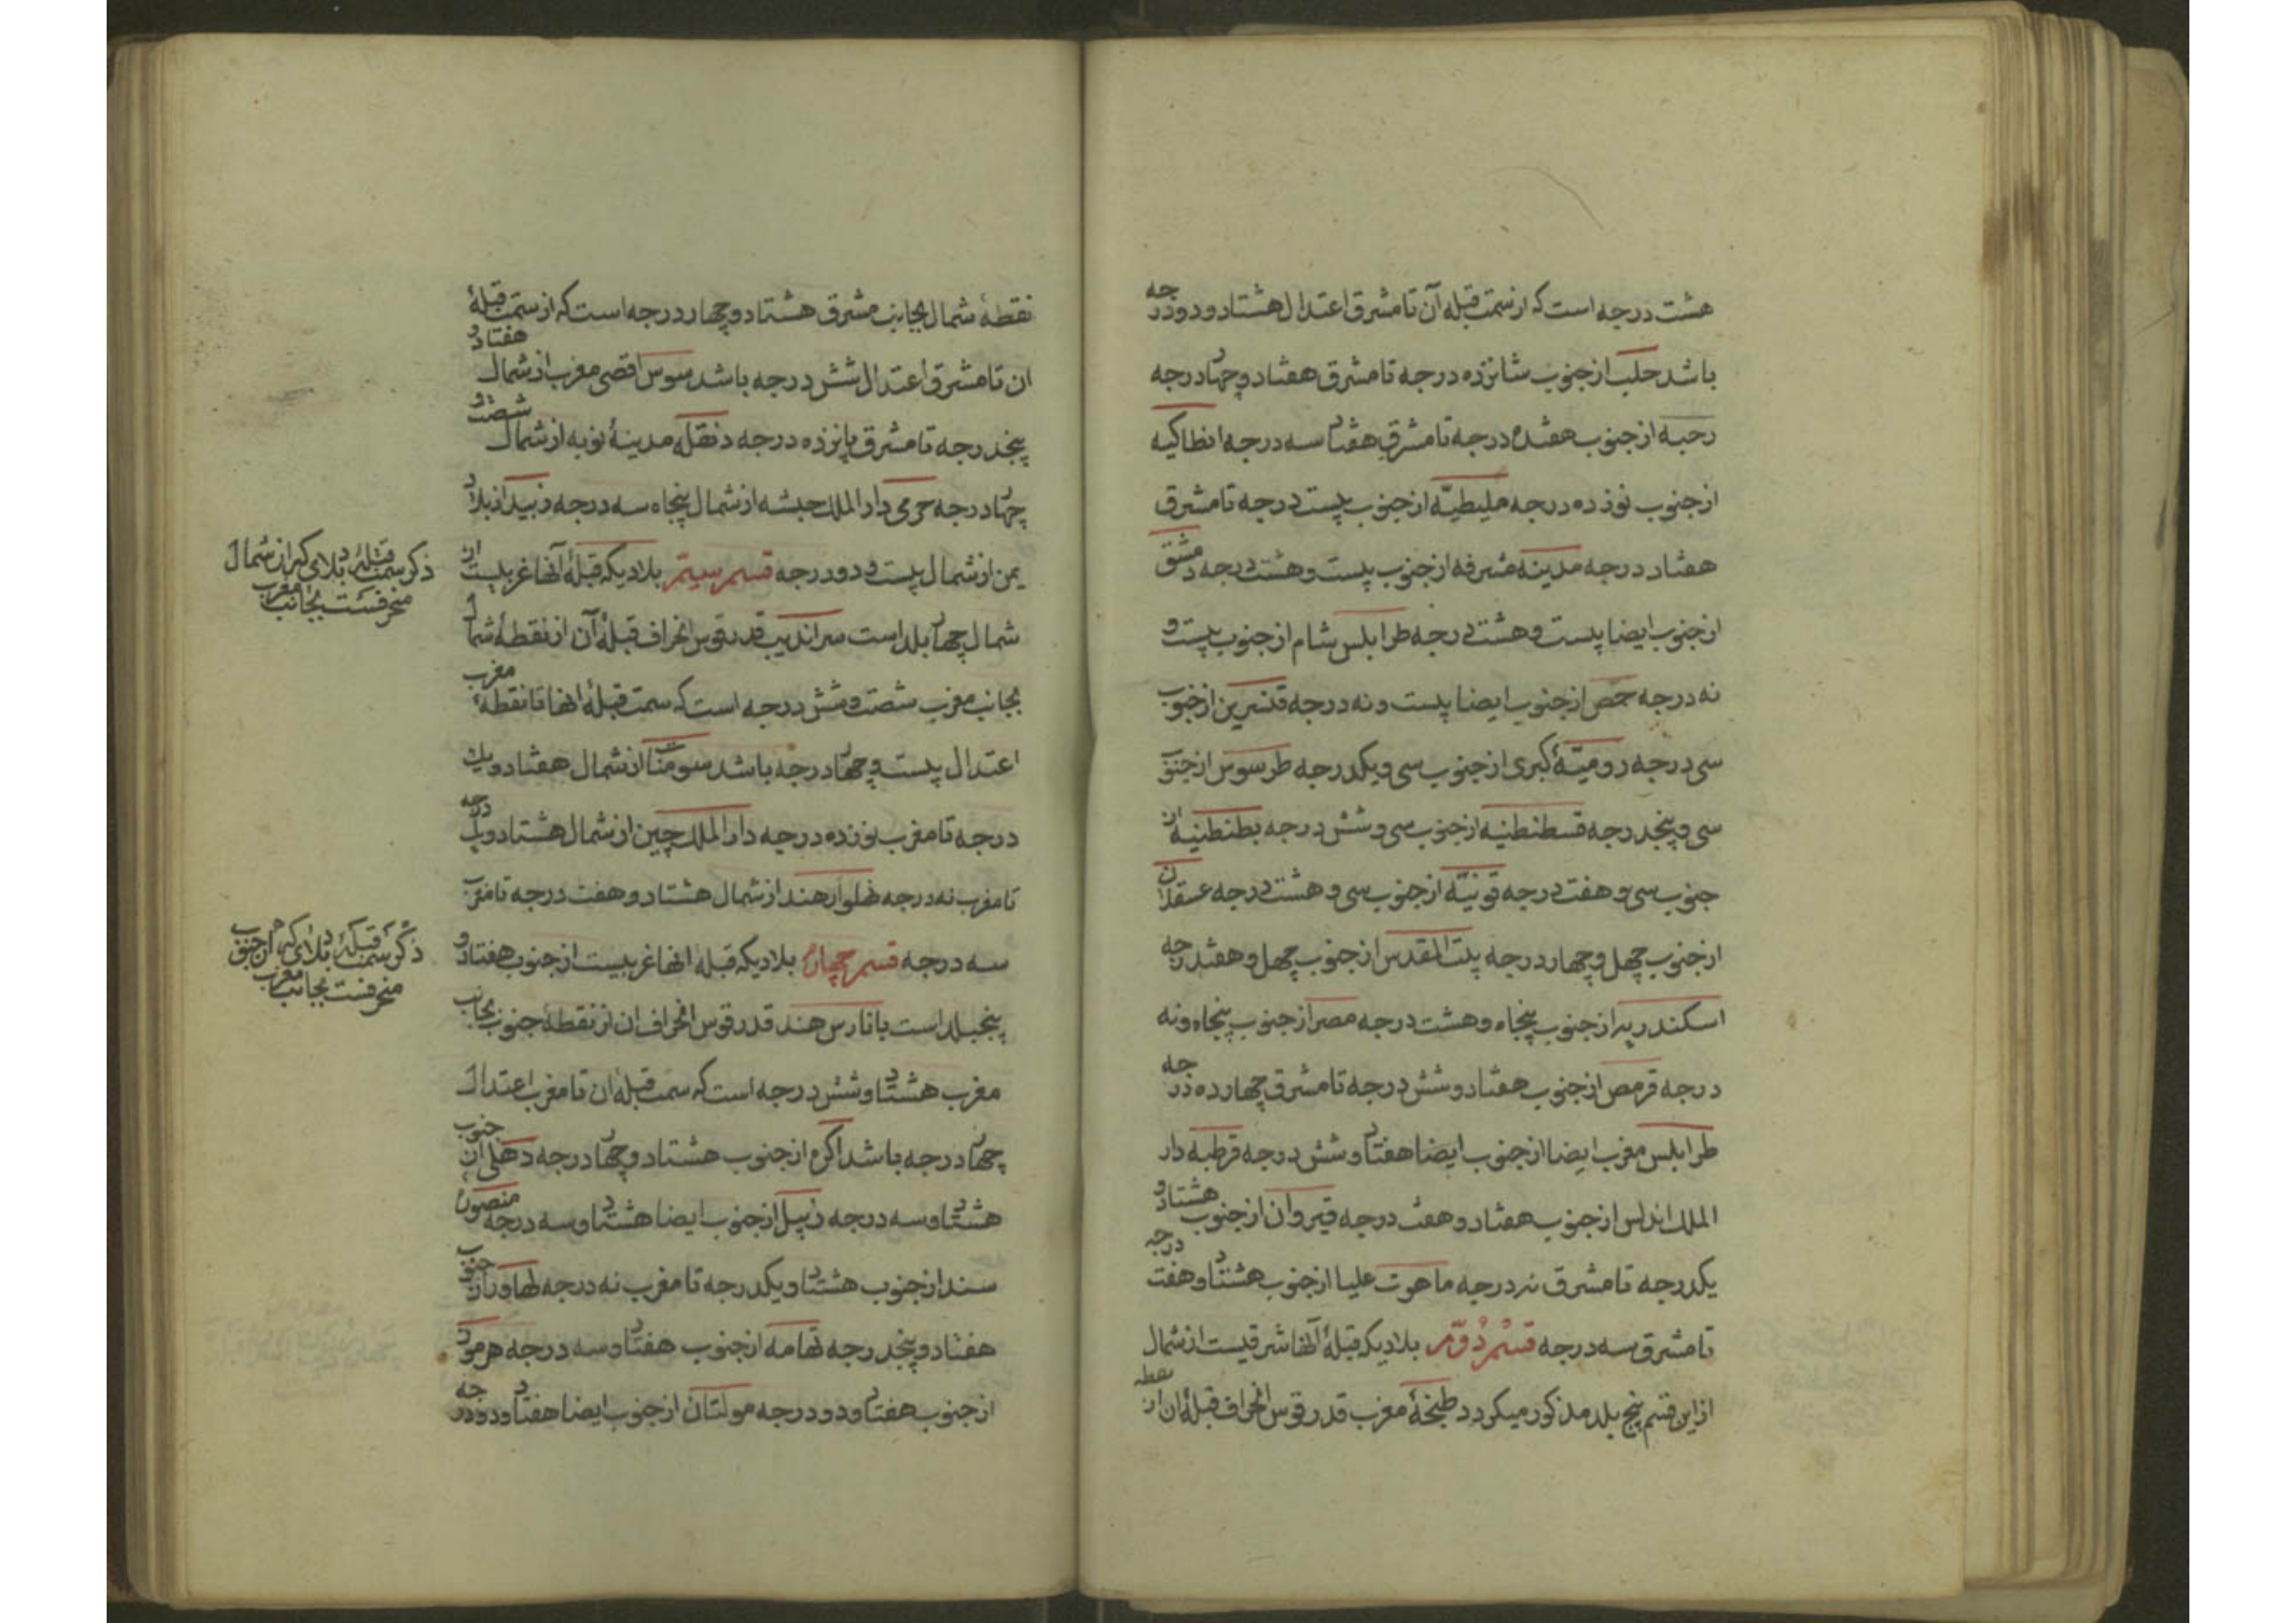 هشت درجه است که از سمت قبله آن تا مشرق اعتدال هشتاد و دو درجه
باشد حلب از جنوب شانزده درجه تا مشرق هفتاد و چهار درجه
رحبه از جنوب هفده درجه تا مشرق هفتاد سه درجه انطاکیه
از جنوب نوزده درجه ملیطیّه از جنوب بیست درجه تا مشرق
هفتاد درجه مدینه مشرفه از جنوب بیست و هشت درجه دمشق
از جنوب ایضا بیست و هشت درجه طرابلس شام از جنوب بیست و
نه درجه حمص از جنوب ایضا بیست و نه درجه قنسرین از جنوب
سی درجه رومیّهٔ کبری از جنوب سی و یکدرجه طرسوس از جنوب
سی و پنجدرجه قسطنطنیه از جنوب سی و شش درجه بطنطنیه از
جنوب سی و هفت درجه قونیّه از جنوب سی و هشت درجه عسقلان
از جنوب چهل و چهار درجه بیت المقدس از جنوب چهل و هفتدرجه
اسکندریه از جنوب پنجاه و هشت درجه مصر از جنوب پنجاه و نه
درجه قرمص از جنوب هفتاد و شش درجه تا مشرق چهارده درجه
طرابلس مغرب ایضا از جنوب ایضا هفتاد و شش درجه قرطبه دار
الملک اندلس از جنوب هفتاد و هفت درجه قیروان از جنوب هشتاد و
یکدرجه تا مشرق نه درجه ماهوت علیا از جنوب هشتاد و هفت درجه
تا مشرق سه درجه قسم دوّم بلادیکه قبلهٔ آنها شرقیست از شمال
از این قسم پنج بلد مذکور میکردد طنجهٔ مغرب قدر قوس انحراف قبلهٔ ان از نقطه
نقطهٔ شمال بجانب مشرق هشتاد و چهار درجه است که از سمت قبلهٔ
ان تا مشرق اعتدال شش درجه باشد سوس اقصی مغرب از شمال هفتاد و
پنجدرجه تا مشرق پانزده درجه دنقله مدینهٔ نوبه از شمال شصت و
چهار درجه جرمی دار الملک حبشه از شمال پنجاه سه درجه زبید از بلاد
یمن از شمال بیست و دو درجه قسم سیّم بلادیکه قبلهٔ آنها غربیست از
شمال چهار بلد است سراندیب قدر قوس انحراف قبلهٔ آن از نقطهٔ شمال
بجانب مغرب شصت و شش درجه است که سمت قبلهٔ انها تا نقطهٔ مغرب
اعتدال بیست و چهار درجه باشد سومنات از شمال هفتاد و یک
درجه تا مغرب نوزده درجه دار الملک چین از شمال هشتاد و یک درجه
تا مغرب نه درجه نهلواره هند از شمال هشتاد و هفت درجه تا مغرب
سه درجه قسم چهارم بلادیکه قبله انها غربیست از جنوب هفتاد و
پنجبلد است بانارس هند قدر قوس انحراف ان از نقطهٔ جنوب بجانب
مغرب هشتاد و شش درجه است که سمت قبله ان تا مغرب اعتدال
چهار درجه باشد اکره از جنوب هشتاد و چهار درجه دهلی از جنوب
هشتاد و سه درجه زنپیل از جنوب ایضا هشتاد و سه درجه منصوره
سند از جنوب هشتاد و یکدرجه تا مغرب نه درجه لهاور از جنوب
هفتاد و پنجدرجه تهامه از جنوب هفتاد و سه درجه هرمود
از جنوب هفتاد و دو درجه مولتان از جنوب ایضا هفتاد و دو درجه
ذکر سمت قبلهٔ بلادی که از شمال
منحرفست بجانب مغرب
ذکر سمت قبلهٔ بلادی که از جنوب
منحرفست بجانب مغرب